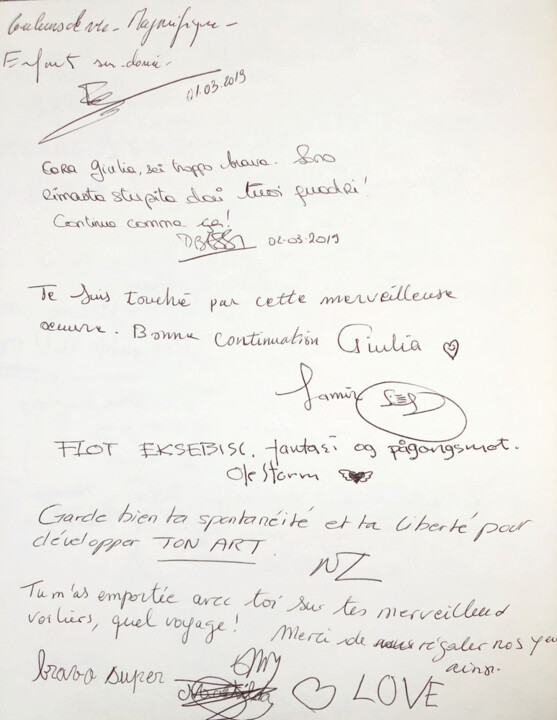 Couleurs de vie - Magnifique -
Enfant sur-douée -
01.03.2019
Cara Giulia, sei troppo brava. Sono
rimasta stupita dai tuoi quadri!
Continua comme ça!
02.03.2019
Je suis touché par cette merveilleuse
œuvre. Bonne continuation Giulia ♡
Samir
FLOT EKSEBISC. fantasi og pågangsmot.
Ole Storm
Garde bien ta spontanéité et ta liberté pour
développer TON ART.
NZ
Tu m'as emportée avec toi sur tes merveilleux
voiliers, quel voyage!
Merci de régaler nos yeux
ainsi.
bravo super
♡ LOVE